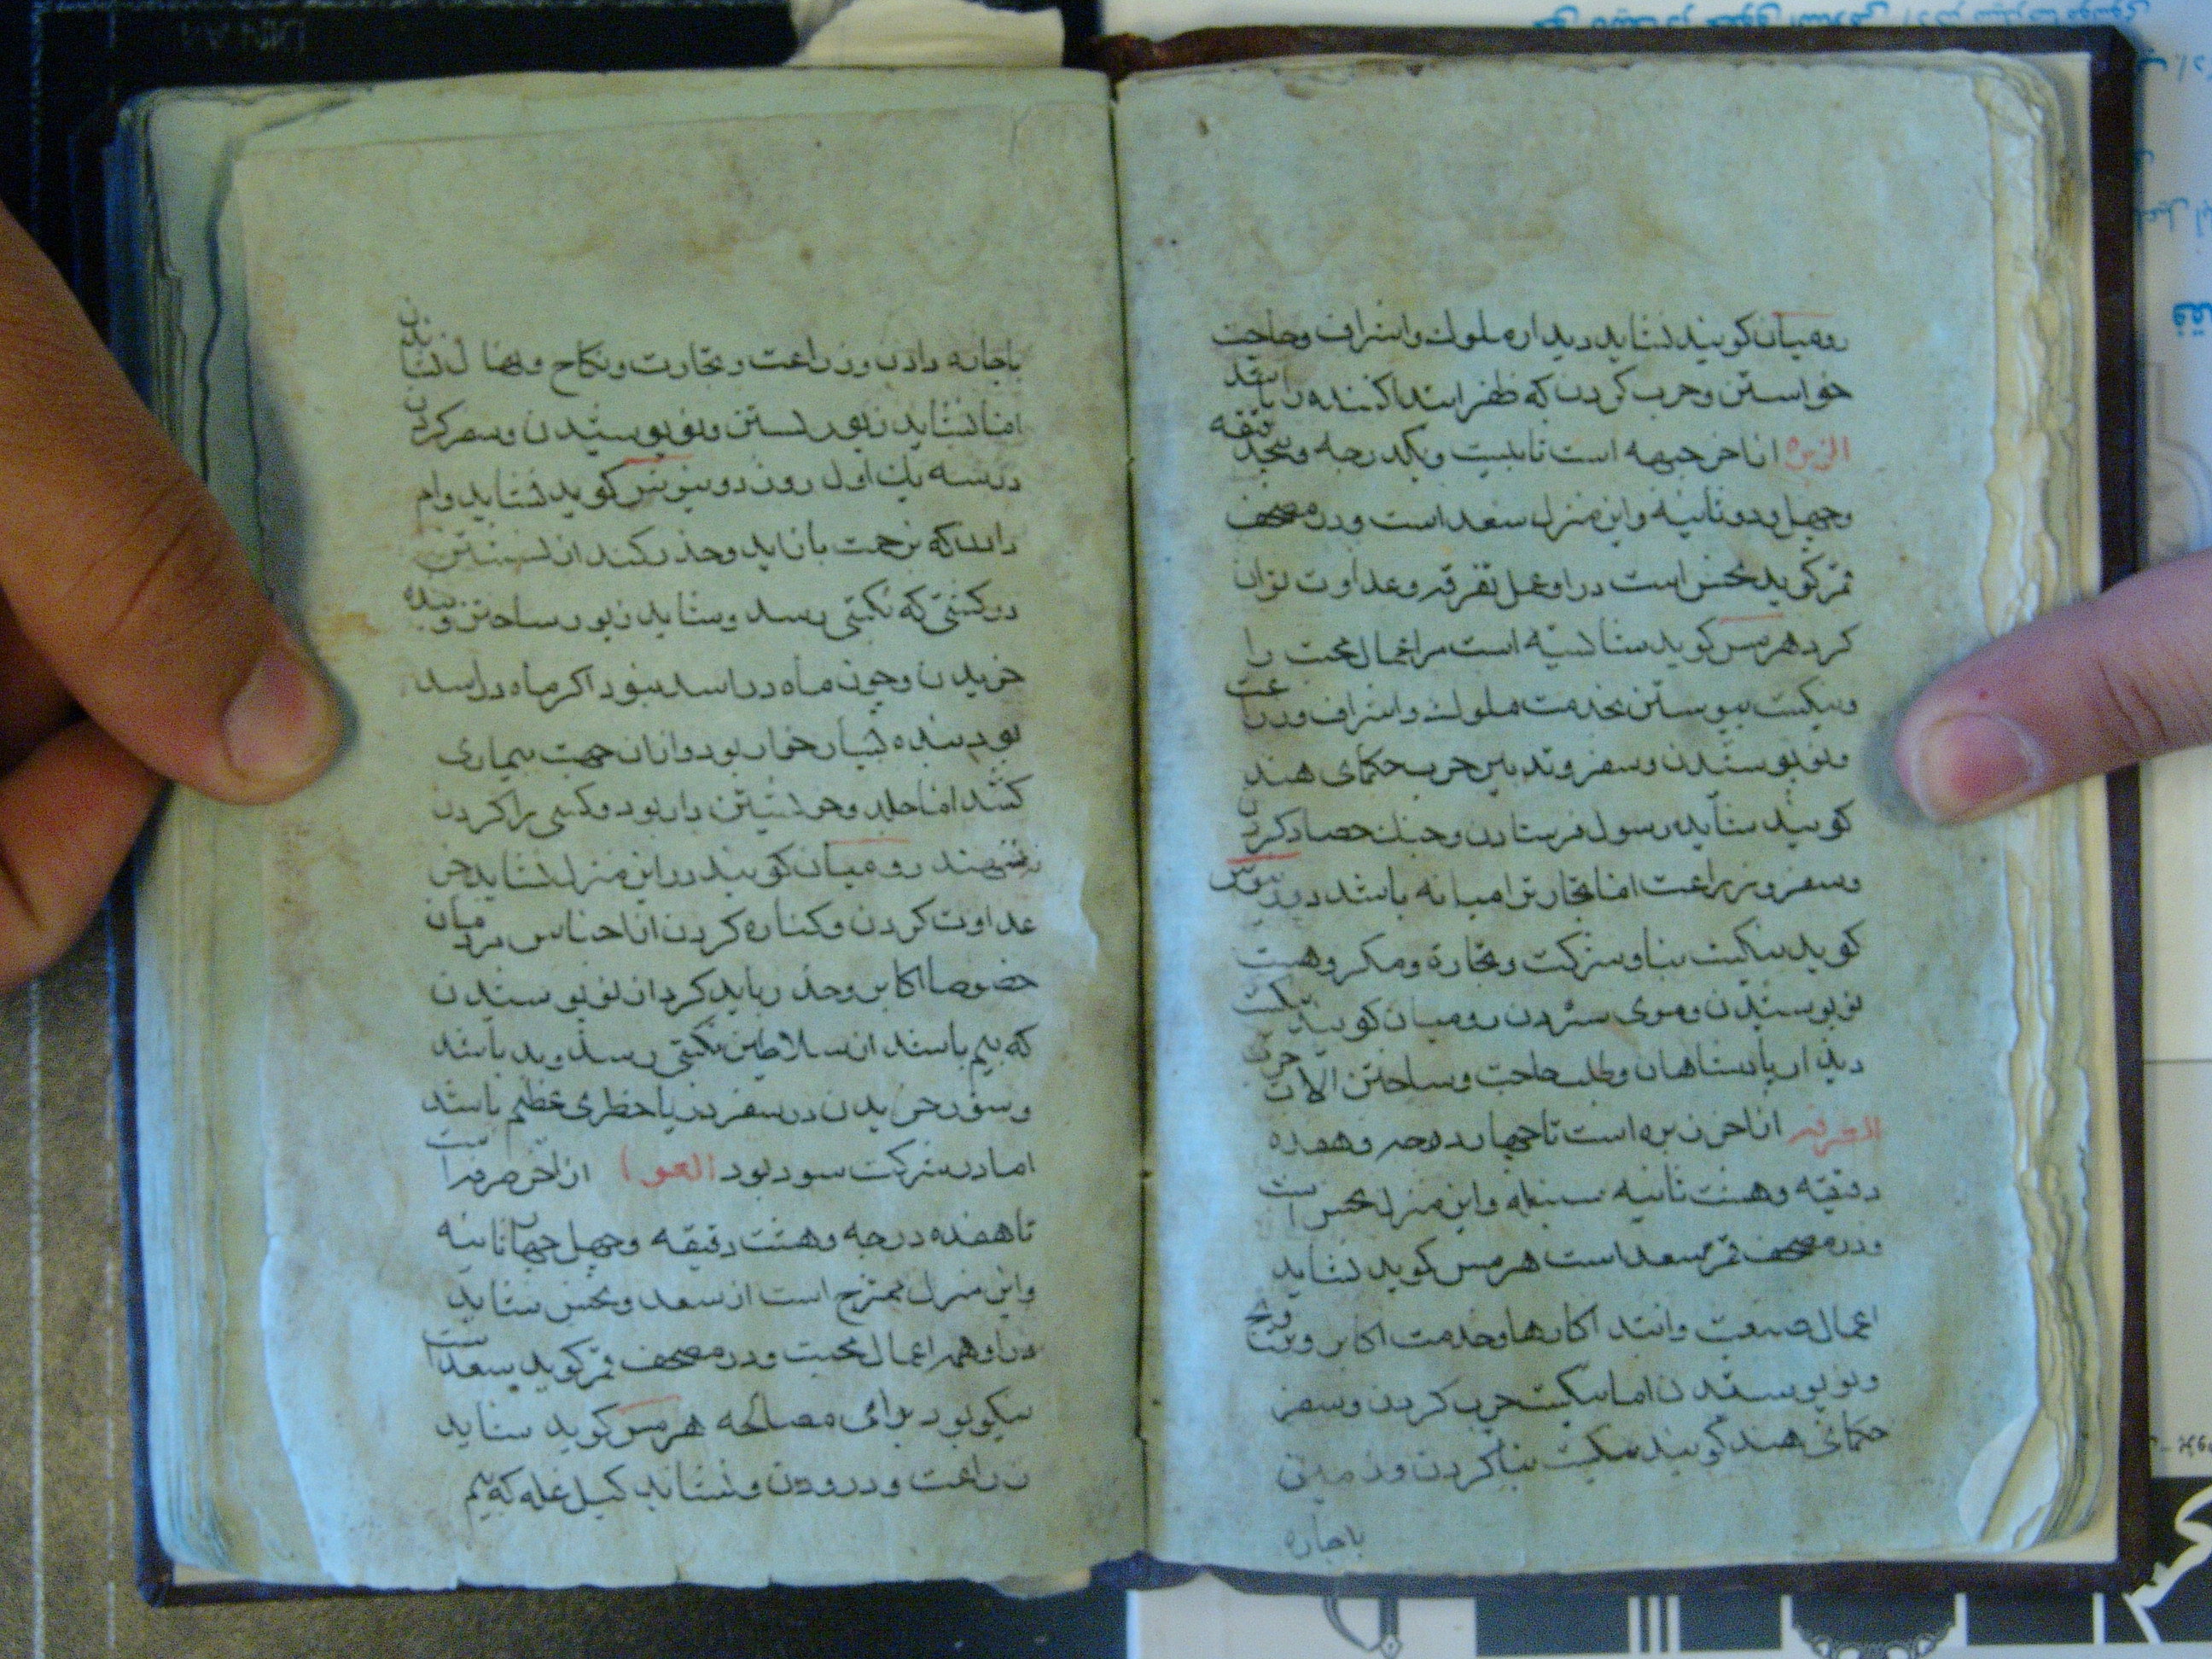 رومیان کویند نشاید دیدار ملوک واشراف وحاجت
خواستن وحرب کردن که ظفر ابتدا کننده را باشد
الزبره از اخر جبهه است تا بیست ویکدرجه وپنجدقیقه
وچهل ودو ثانیه واین منزل سعد است ودر مصحف
قمر کوید نحس است در او عمل تفرقه وعداوت توان
کرد هرمس کوید شایسته است مر اعمال محبت را
ونیکست پیوستن بخدمت ملوک واشراف وزراعت
ونو پوشیدن وسفر وتدبیر حرب حکمای هند
کویند شاید رسول فرستادن وجنک حصار کردن
وسفر وزراعت اما تجارت را میانه باشد
کوید نیکست بنا وشرکت وتجارة ومکروهست
نو پوشیدن وموی ستردن رومیان کویند نیکست
دیدار پادشاهان وطلب حاجت وساختن الات حرب
الصرفه از اخر زبره است تا چهار درجه وهفده
دقیقه وهشت ثانیه سنبله واین منزل نحس است
ودر مصحف قمر سعد است هرمس کوید نشاید
اعمال صنعت وابتدا کارها وخدمت اکابر
ونو پوشیدن اما نیکست حرب کردن وسفر
حکمای هند کویند نیکست بنا کردن وزمین
باجاره
باجاره دادن وزراعت وتجارت ونکاح نشاندن
اما نشاید زیور بستن ونو پوشیدن وسفر کردن
در سه یک اول روز کوید نشاید وام
دادن که بزحمت باز اید وحذر کند از نشستن
در کشتی که نکبتی رسد وشاید زیور ساختن وبنده
خریدن وچون ماه در اسد بود اکر ماه در اسد
بود بنده بسیار خوار بود واز ان جهت بیماری
کشد اما جلد وخویشتن دار بود
رومیان کویند در این منزل نشاید جز
عداوت کردن وکناره کردن از اجناس مردمان
خصوصا اکابر وحذر باید کرد از نو پوشیدن
که بیم باشد از سلاطین نکبتی رسد وبد باشد
وستور خریدن در سفر دریا خطری عظیم باشد
اما در شرکت سود بود العوا از اخر صرفه است
تا هفده درجه وهشت دقیقه وچهل چهار ثانیه
واین منزل ممتزج است از سعد ونحس شاید
در او همه اعمال محبت ودر مصحف قمر کوید سعد است
نیکو بود برای مصالحه هرمس کوید شاید
زراعت ودرودن ونشاید کیل غله که بیم